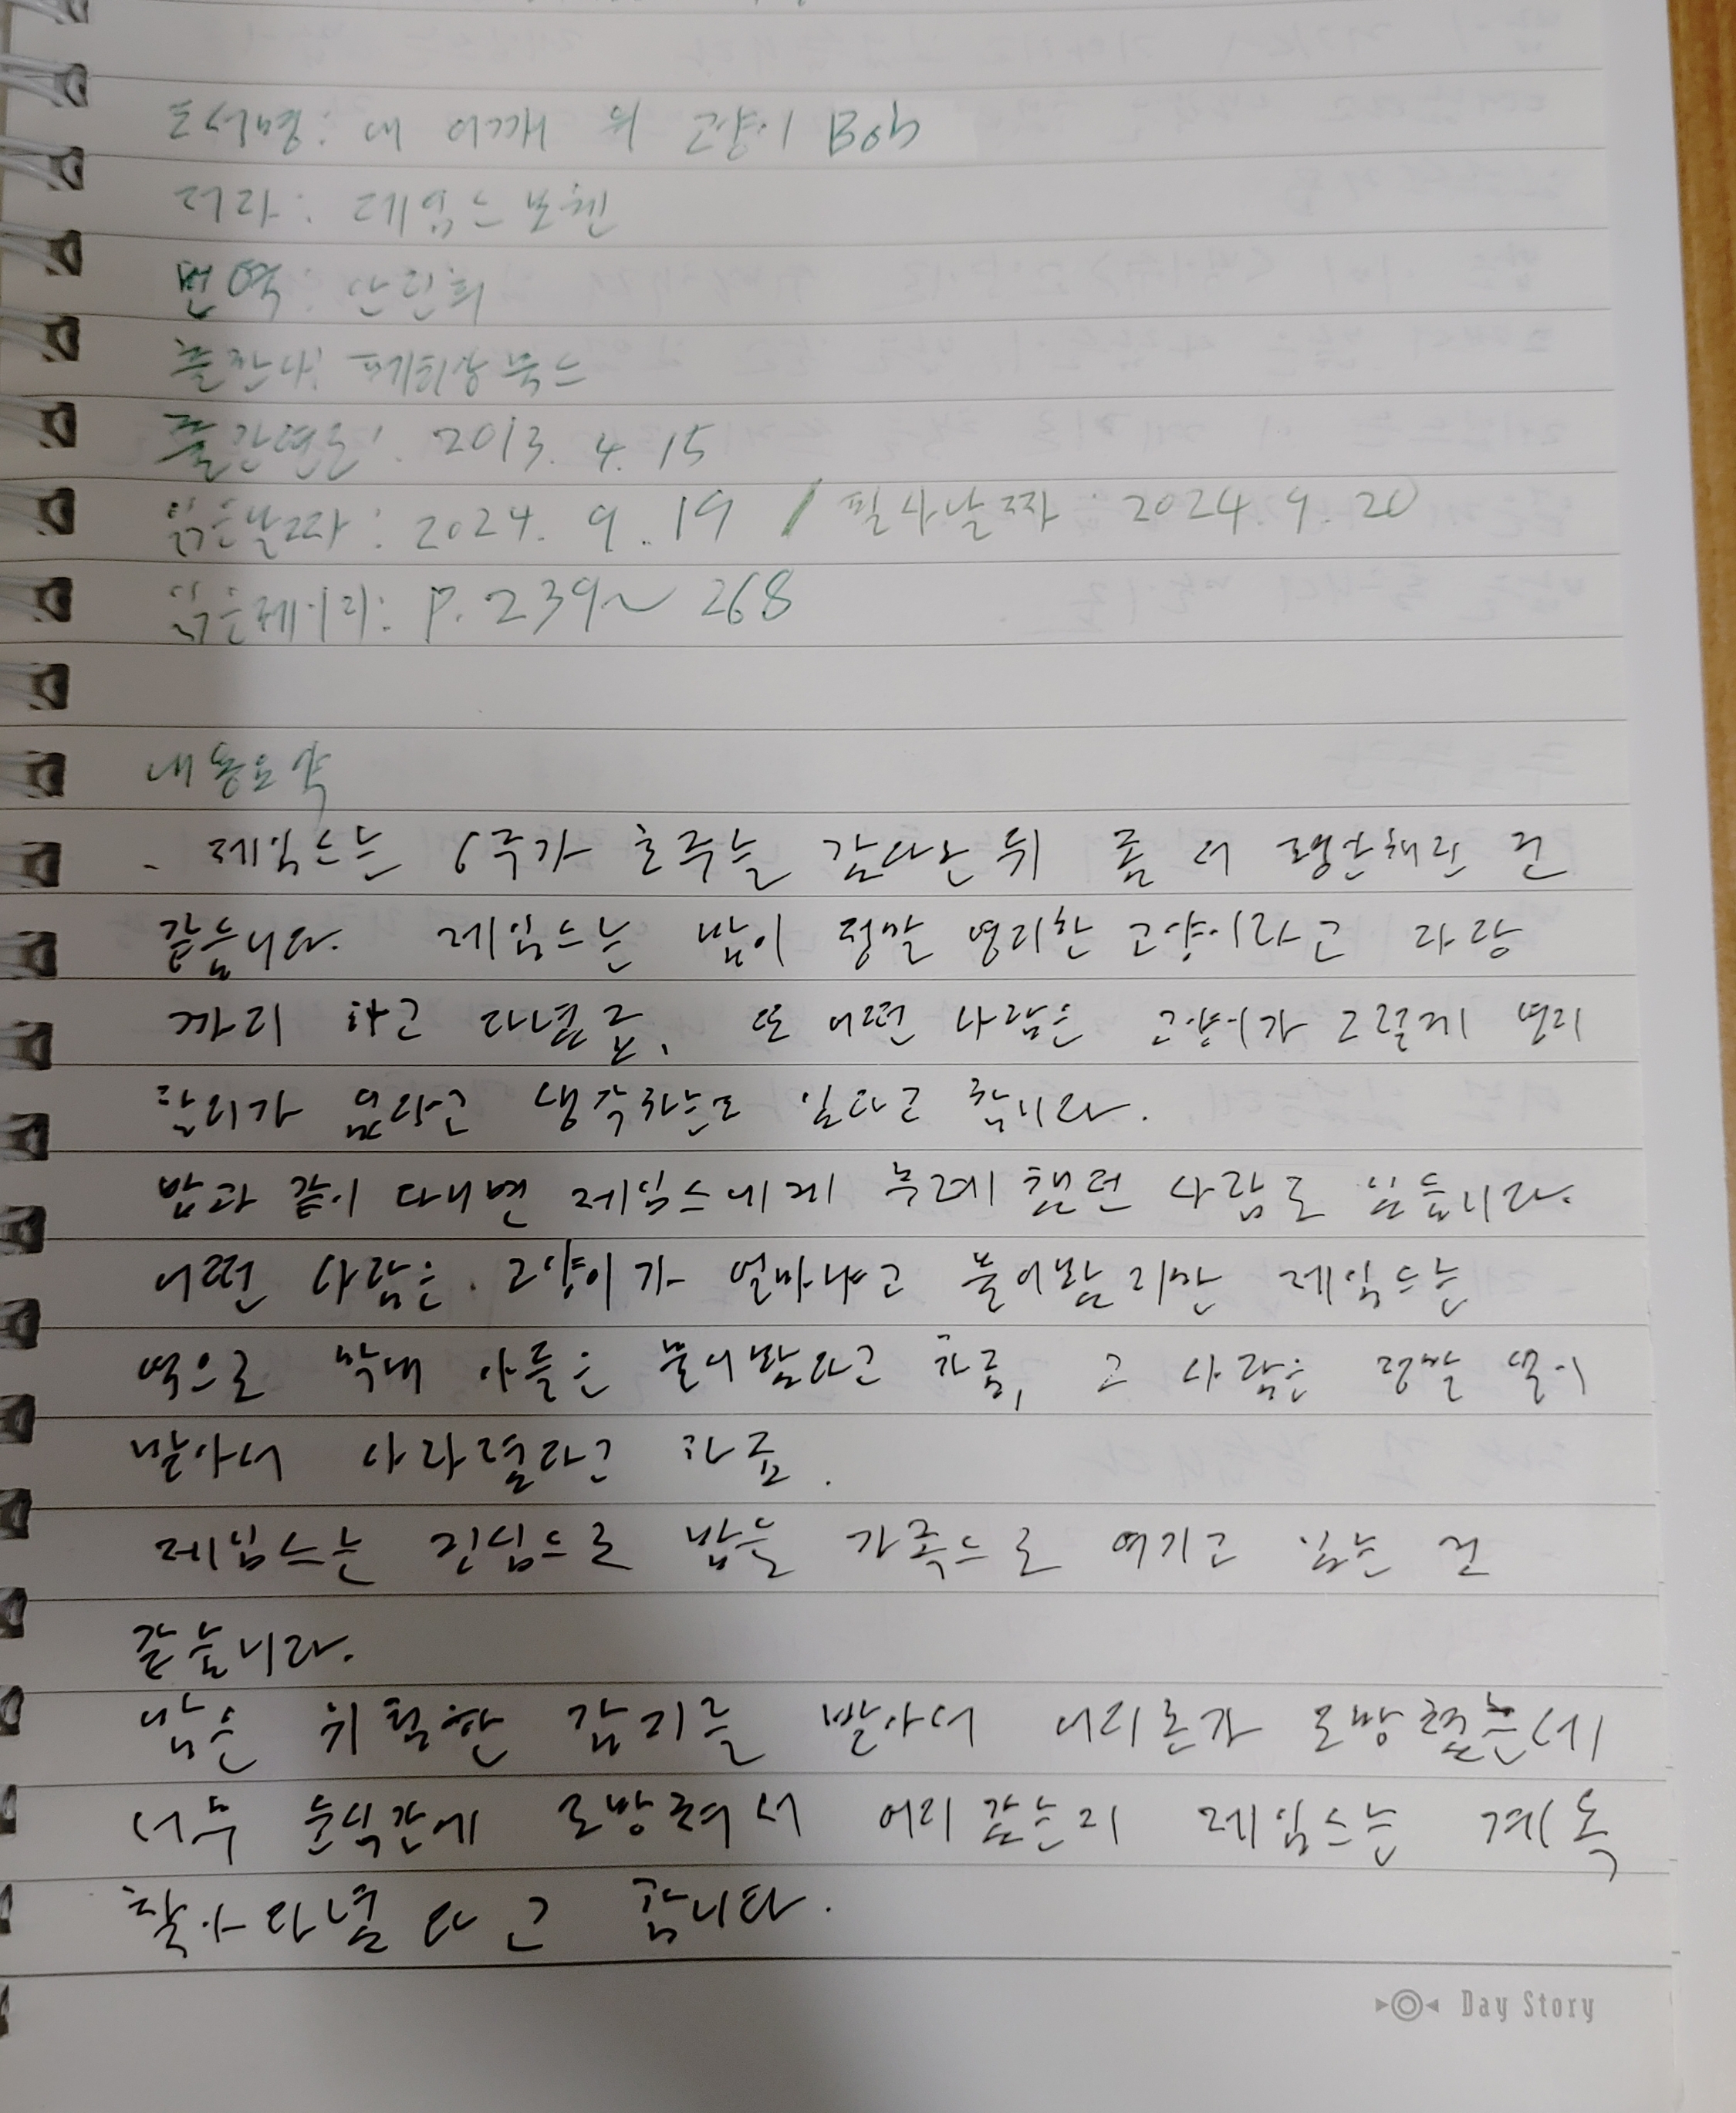 도서명: 내 어깨 위 고양이 Bob
저자: 제임스 보웬
번역: 안진희
출판사: 페티앙북스
출간연도: 2013. 4. 15
읽은날짜: 2024. 9. 19 / 필사날짜: 2024. 9. 20
읽은페이지: P. 239~268
내용요약
- 제임스는 6주가 호주를 갔다온 뒤 좀 더 평안해진 것
같습니다. 제임스는 밥이 정말 영리한 고양이라고 자랑
까지 하고 다녔죠, 또 어떤 사람은 고양이가 그렇게 영리
할리가 없다고 생각하는도 있다고 합니다.
밥과 같이 다니면 제임스에게 무례했던 사람도 있습니다.
어떤 사람은 고양이가 얼마냐고 물어봤지만 제임스는
역으로 막내 아들은 물어봤다고 하죠, 그 사람은 정말 열이
받아서 사라졌다고 하죠.
제임스는 진심으로 밥을 가족으로 여기고 있는 것
같습니다.
밥은 위험한 감지를 받아서 어디론가 도망쳤는데
너무 순식간에 도망쳐서 어디갔는지 제임스는 계속
찾아다녔다고 합니다.
Day Story